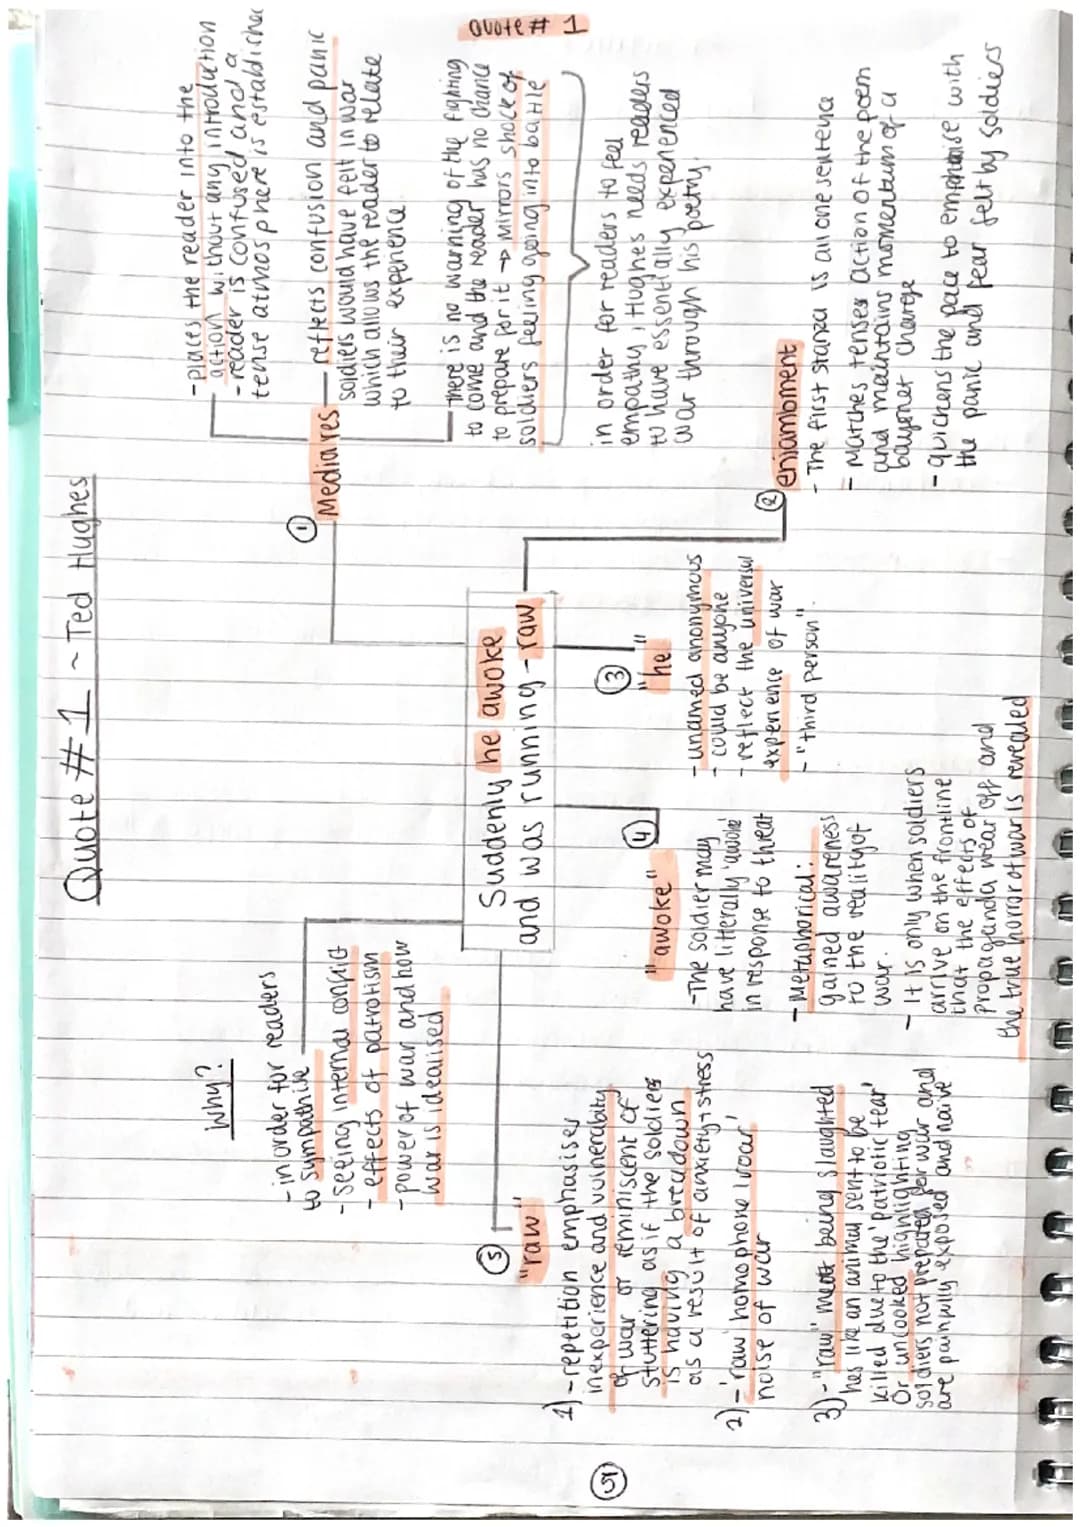 Quote # 1 ~ Ted Hughes
Quote # 1
Why?
- in order for readers
to sympathise
- seeing internal conflict
- effects of patriotism
- power of war and how
war is idealised
Suddenly he awoke
and was running - raw
① Mediares
- places the reader into the
action without any introduction
- reader is confused and a
tense atmosphere is established
- reflects confusion and panic
soldiers would have felt in war
which allows the reader to relate
to their experience
- there is no warning of the fighting
to come and the reader has no chance
to prepare for it → mirrors shock of
soldiers feeling going into battle
in order for readers to feel
empathy, Hughes needs readers
to have essentially experienced
war through his poetry.
② enjambment
- The first stanza is all one sentence
- Matches tenses action of the poem
and maintains momentum of a
bayonet charge
- quickens the pace to emphasise with
the panic and fear felt by soldiers
③ "he"
- unamed anonymous
- could be anyone
- reflect the universal
experience of war
- "third person".
④ "awoke"
- The soldier may
have literally 'awoke'
in response to threat
- Metaphorical:
gained awareness
to the reality of
war.
- It is only when soldiers
arrive on the frontline
that the effects of
propaganda wear off and
the true horror of war is revealed
⑤ "raw"
1) - repetition emphasises
inexperience and vunerability
of war or reminiscent of
stuttering as if the soldiers
is having a breadown
as a result of anxiety + stress
2) - 'raw' homophone 'roar'
noise of war
3) - "raw" meat being slaughted
hes like an animal sent to be
killed due to the 'patriotic tear'
Or uncooked highlighting
soldiers not prepared for war and
are painfully exposed and naive.
⑤